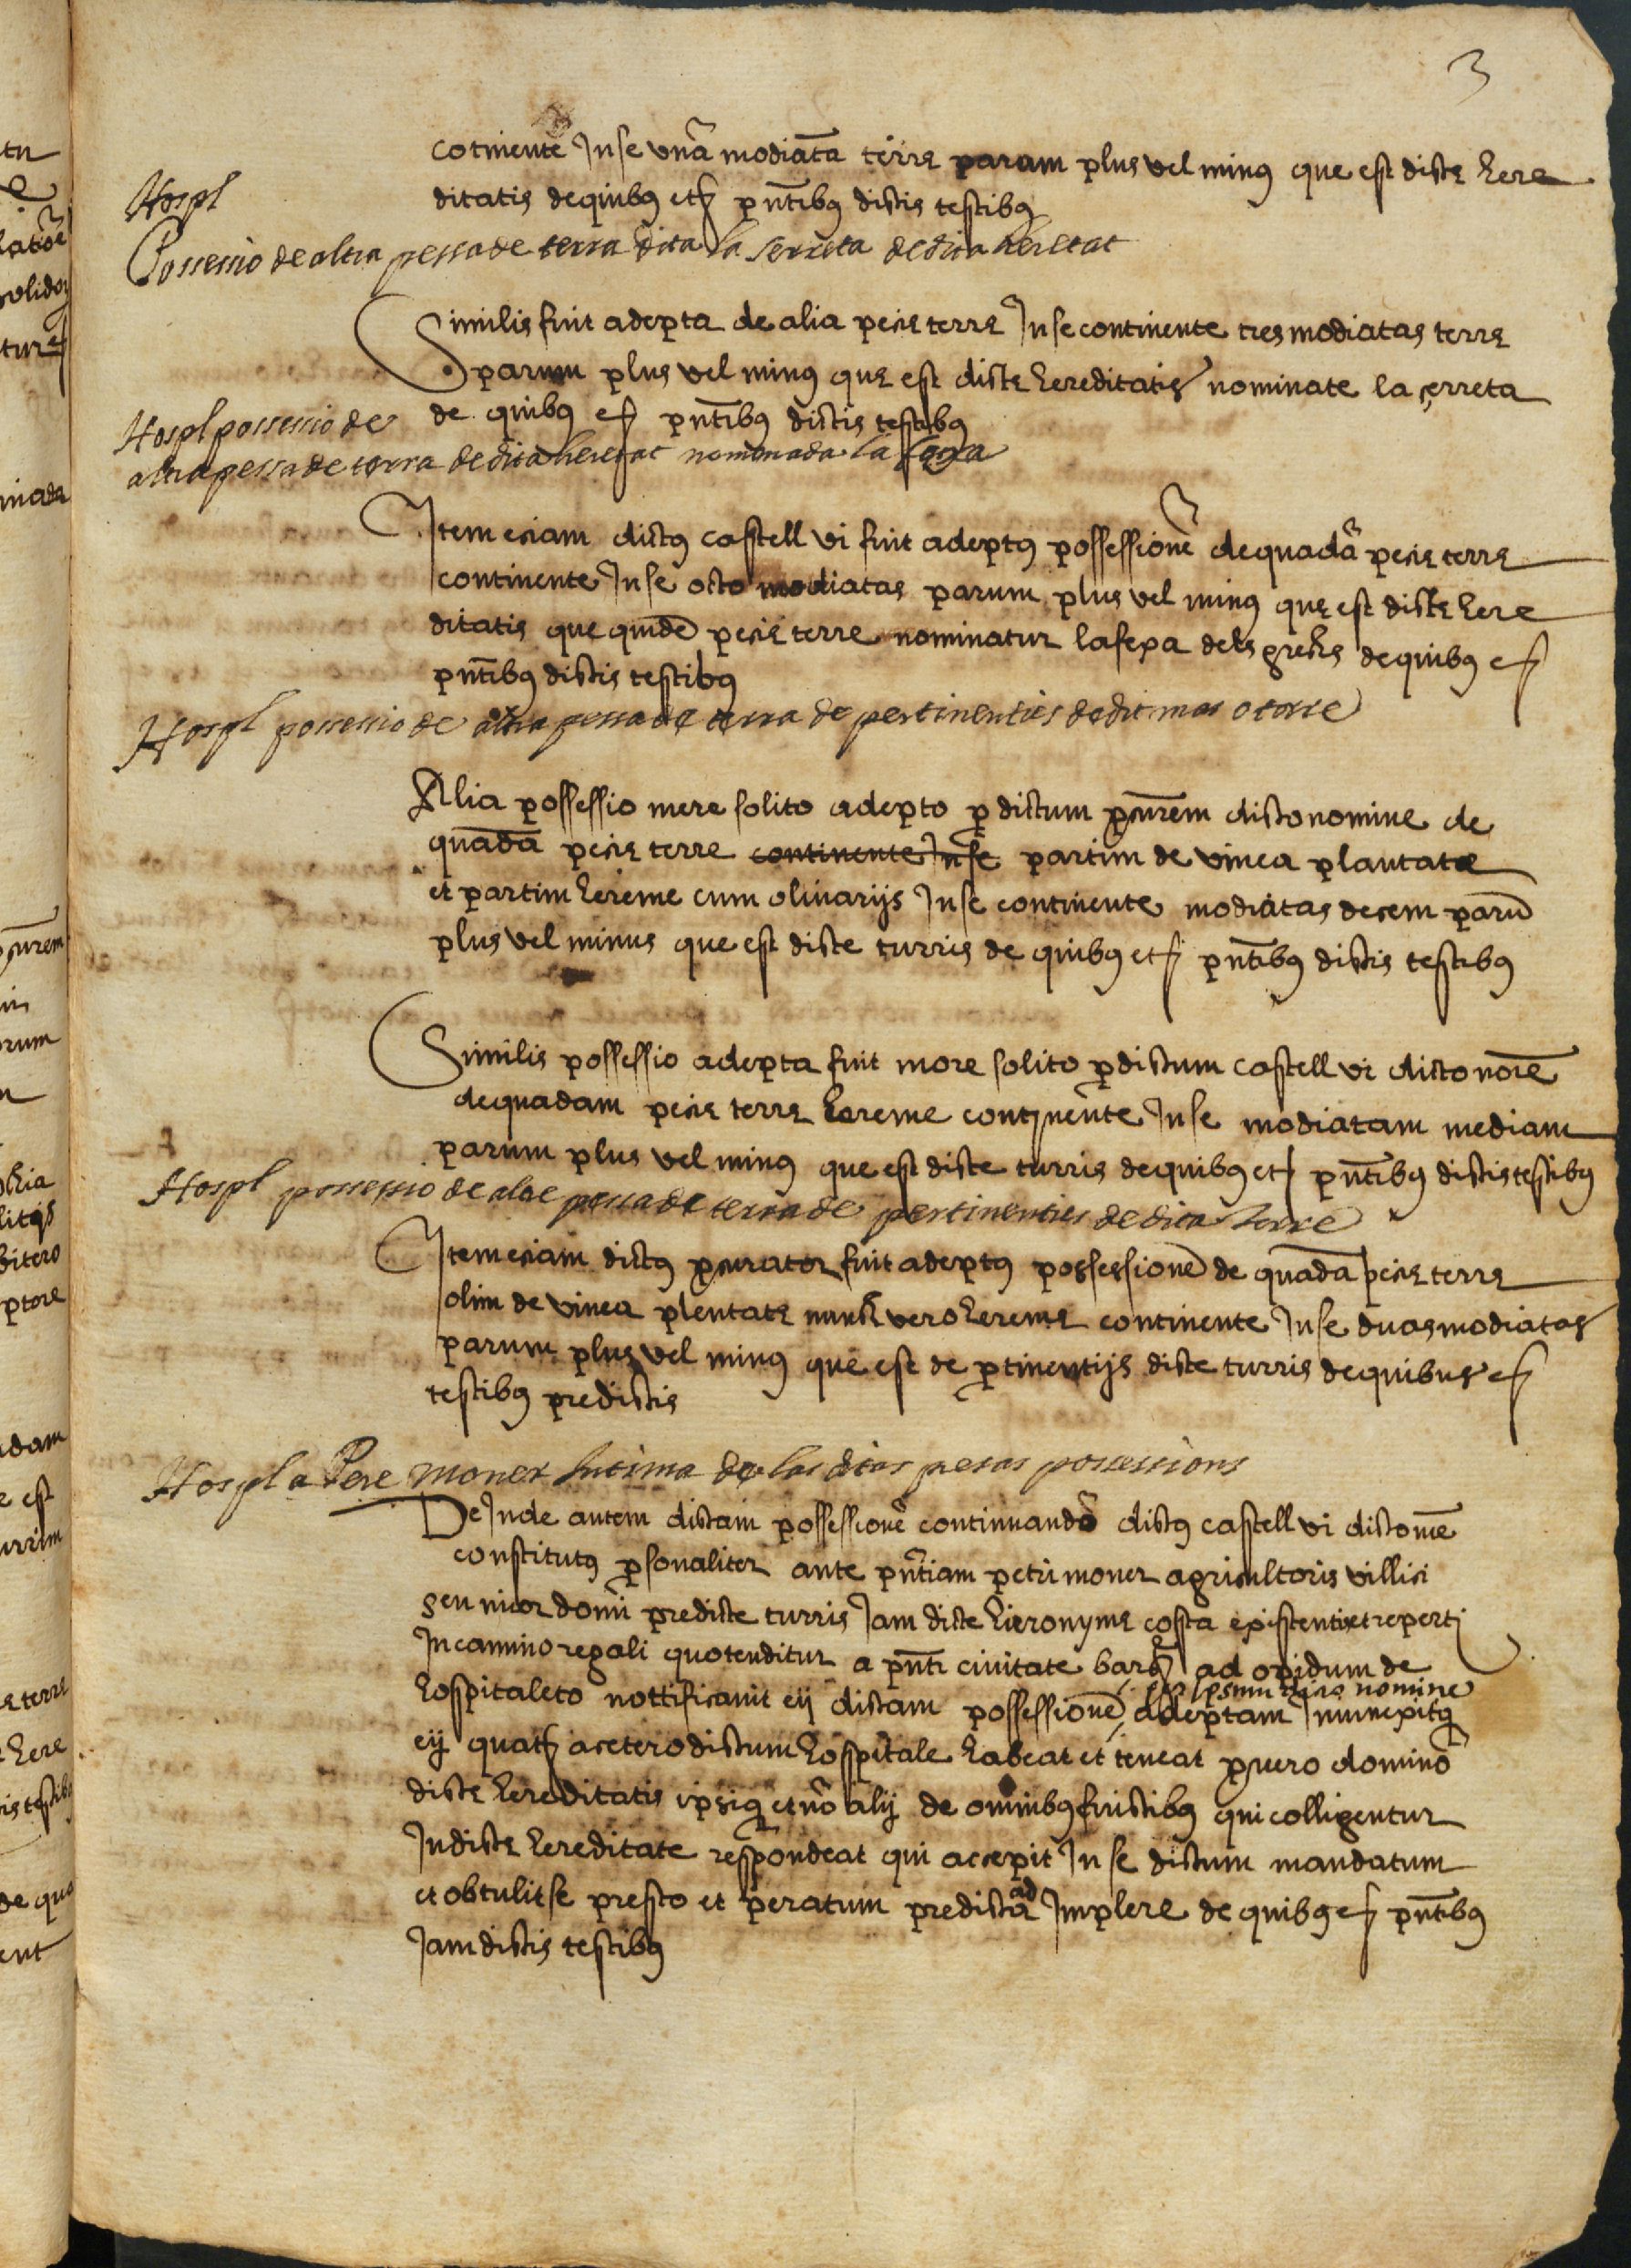 3
cotinente Inse una modiata terre parum plus vel minus que est dicte here
ditatis de quibus etc pntibus dictis testibus
Hospl
Possessio de altra pessa de terra dita la serreta de dita heretat
Similis fuit adepta de alia pecie terre Inse continente tres modiatas terre
parum plus vel minus que est dicte hereditatis nominate la serreta
de quibus etc pntibus dictis testibus
Hospl possessio de
altra pessa de terra de dita heretat nomenada la
Item eciam dictus castell vi fuit adeptus possessione de quada pecie terre
continente Inse octo modiatas parum plus vel minus que est dicte here
ditatis que quide pecie terre nominatur la fexa dels grechs de quibus etc
pntibus dictis testibus
Hospl possessio de altra pessa de terra de pertinenties de dit mas o torre
Alia possessio more solito adepto p dictum pcurem dicto nomine de
quada pecie terre continente Inse partim de vinea plantate
et partim hereme cum olivarijs Inse continente modiatas decem paru
plus vel minus que est dicte turris de quibus etc pntibus dictis testibus
Similis possessio adepta fuit more solito p dictum castell vi dicto noie
de quadam pecie terre hereme continente Inse modiatam mediam
parum plus vel minus que est dicte turris de quibus etc pntibus dictis testibus
Hospl possessio de altre pessa de terra de pertinenties de dita torre
Item eciam dictus pcurator fuit adeptus possessione de quada pecie terre
olim de vinea plentate nunch vero hereme continente Inse duas modiatas
parum plus vel minus que est de ptinentijs dicte turris de quibus etc
testibus predictis
Hospl a Pere moner Intima de las ditas pesas possessions
De Inde autem dictam possessione continuando dictus castell vi dicto nome
constitutus psonaliter ante pntiam petri moner agricultoris villici
seu maior domi predicte turris Jam dicte hieronyme costa existentis et reperti
In camino regali quo tenditur a pnti civitate barch ad opidum de
hospitaleto nottificavit eij dictam possessione p ipsum dicto nomine adeptam Iniunxitq
eij quatf a cetero dictum hospitale habeat et teneat p vero domino
dicte hereditatis ipsiq et no alij de omnibus fructibus qui colligentur
In dicte hereditate respondeat qui accepit In se dictum mandatum
et obtulit se presto et peratum predicta ad Implere de quibus etc pntibus
Jam dictis testibus